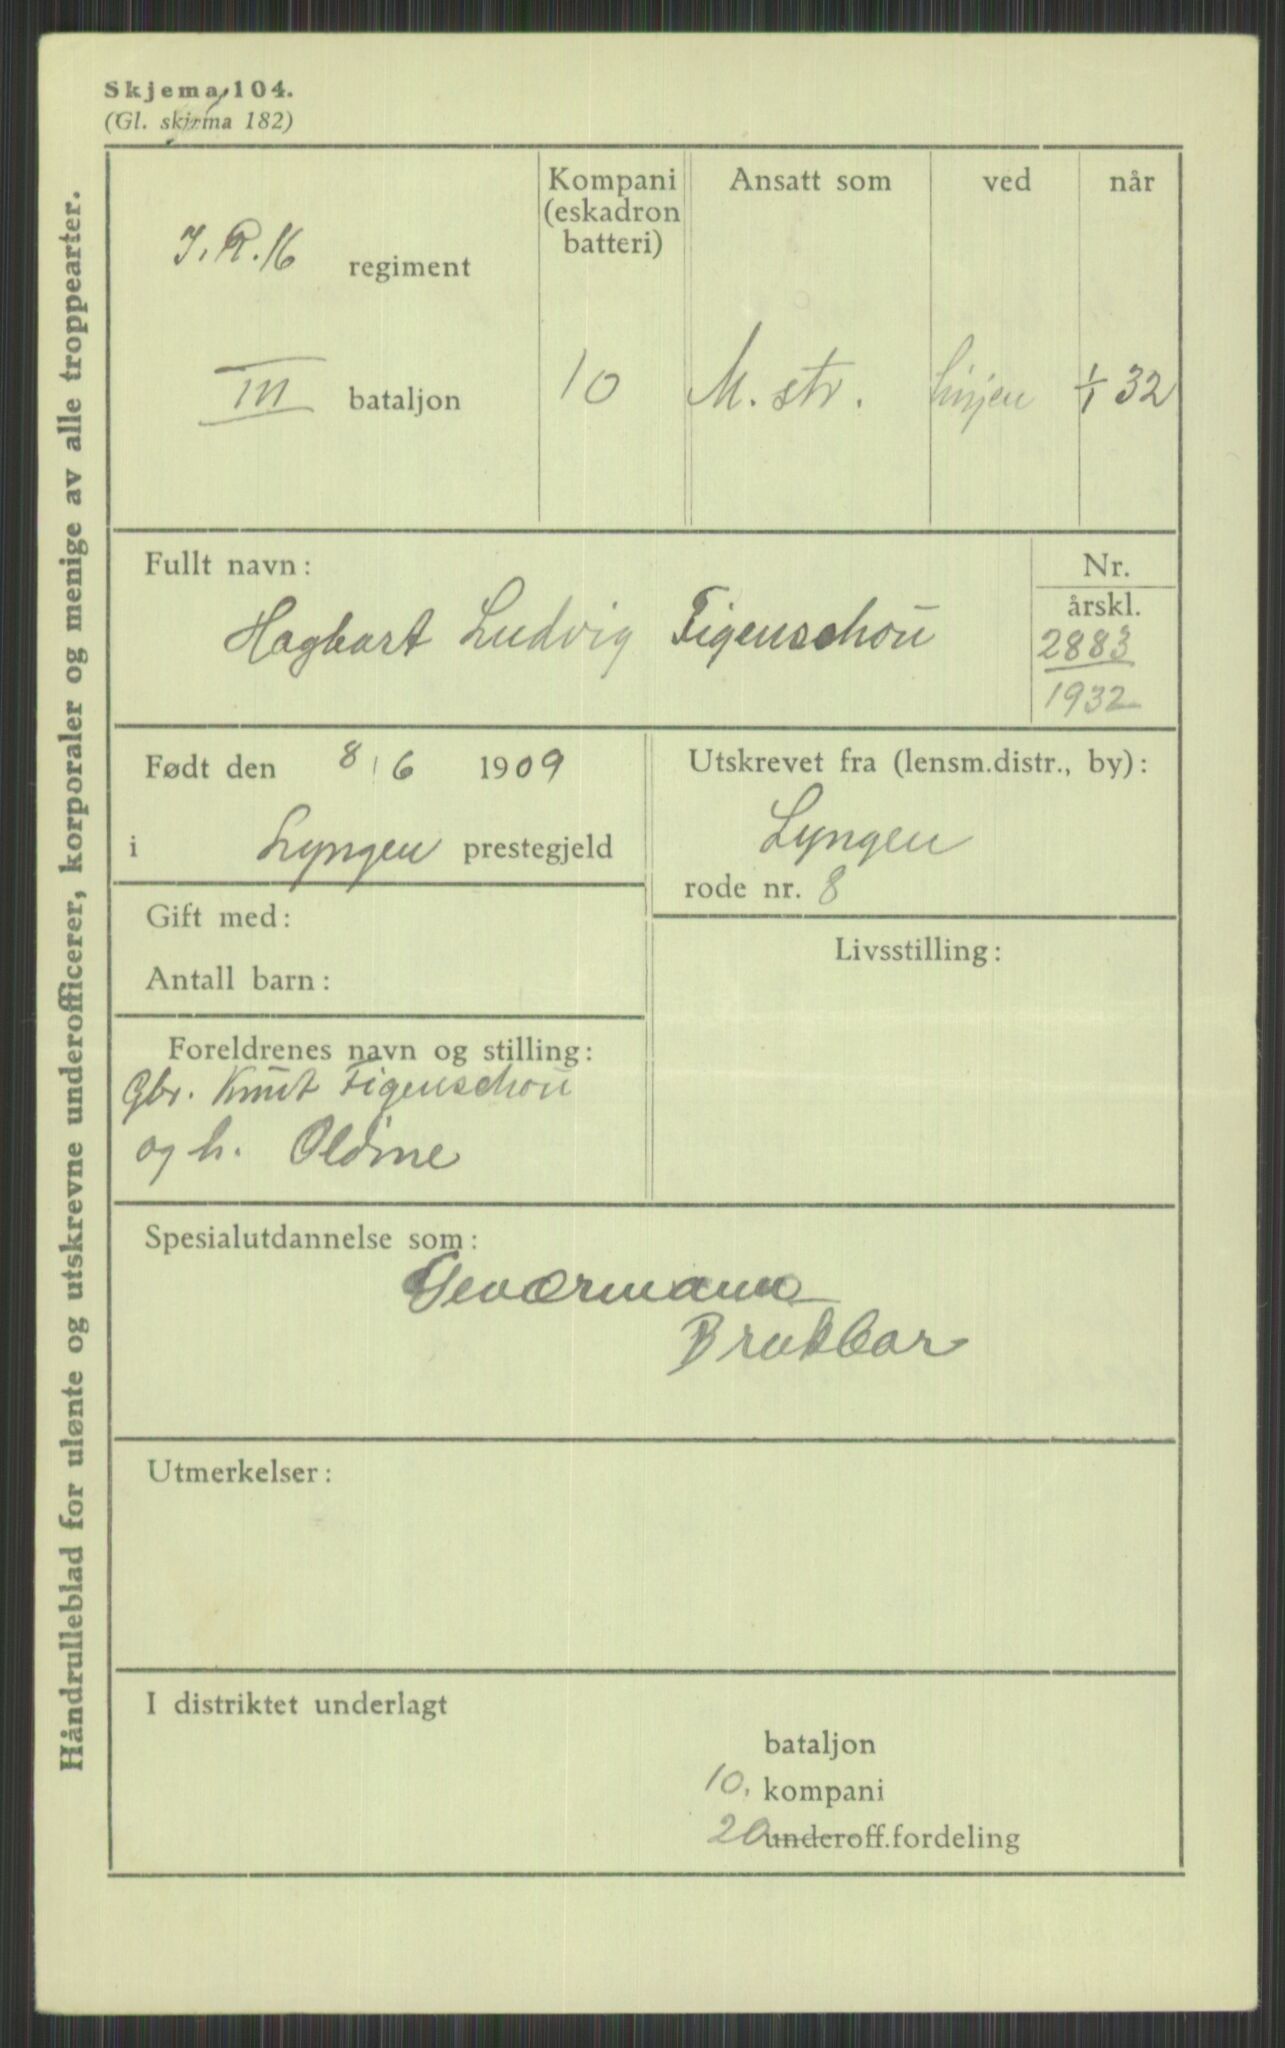 Skjema 104.
(Gl. skjema 182)
Håndrulleblad for ulønte og utskrevne underofficerer, korporaler og menige av alle troppearter.
I.R.16 regiment
III bataljon
Kompani
(eskadron
batteri)
10
Ansatt som
M. str.
ved
linjen
når
1/1 32
Fullt navn:
Hagbart Ludvig Figenschou
Nr.
årskl.
2883
1932
Født den 8/6 1909
i Lyngen prestegjeld
Utskrevet fra (lensm.distr., by):
Lyngen
rode nr. 8
Gift med:
Antall barn:
Livsstilling:
Foreldrenes navn og stilling:
Gbr. Knut Figenschou
og h. Oldine
Spesialutdannelse som:
Geværmann
Brukbar
Utmerkelser:
I distriktet underlagt
bataljon
10. kompani
20 underoff.fordeling